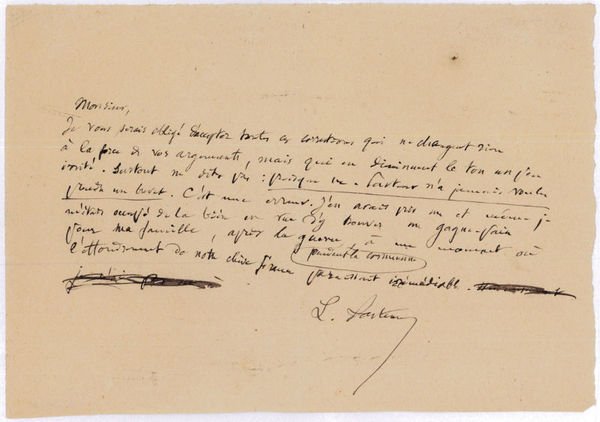 Monsieur,
Je vous serais obligé d'accepter toutes ces corrections qui ne changent rien
à la force de vos arguments, mais qui en diminuent le ton un peu
irrité. Surtout ne dites pas : puisque M. Pasteur n'a jamais voulu
prendre un brevet. C'est une erreur. J'en avais pris un et même je
m'étais occupé de la bière en vue d'y trouver un gagne-pain
pour ma famille, après la guerre à un moment où
pendant la commune
l'effondrement de notre chère France paraissait irrémédiable.
L. Pasteur